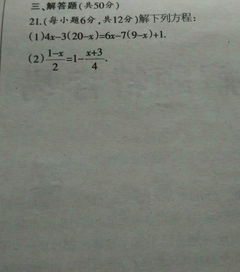 三、解答题(共50分)
21.(每小题6分,共12分)解下列方程:
(1)4x-3(20-x)=6x-7(9-x)+1.
(2)\frac{1-x}{2}=1-\frac{x+3}{4}.